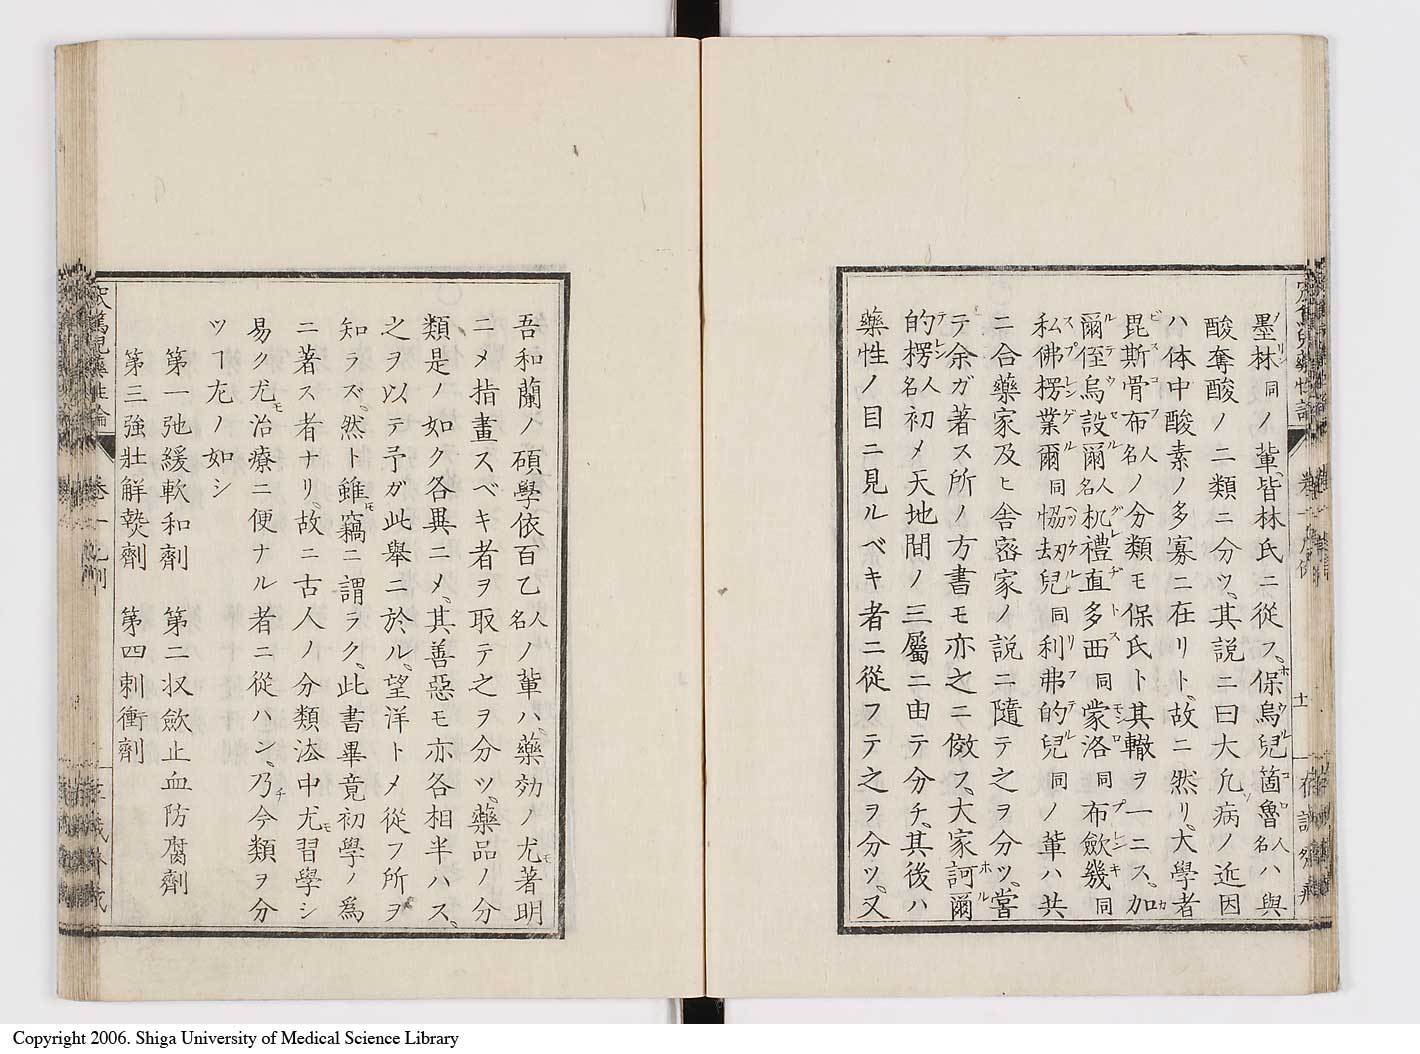 墨林同ノ輩、皆林氏ニ從フ、保烏兒箇魯人名ハ與
酸奪酸ノ二類ニ分ツ、其説ニ曰大凡病ノ近因
ハ体中酸素ノ多寡ニ在リト、故ニ然リ、大學者
毘斯骨布人名ノ分類モ保氏ト其轍ヲ一ニス、加
爾侄烏設爾人名机禮直多西同蒙洛同布歛幾同
私佛楞業爾同恊刼兒同利弗的兒同ノ輩ハ共
ニ合藥家及ヒ舎密家ノ説ニ隨テ之ヲ分ツ、嘗
テ余ガ著ス所ノ方書モ亦之ニ傚ス、大家訶爾
的楞人名初メ天地間ノ三屬ニ由テ分チ、其後ハ
藥性ノ目ニ見ルベキ者ニ從フテ之ヲ分ツ、又
吾和蘭ノ碩學依百乙人名ノ輩ハ、藥効ノ尤著明
ニメ指畫スベキ者ヲ取テ之ヲ分ツ、藥品ノ分
類是ノ如ク各異ニメ、其善惡モ亦各相半ハス、
之ヲ以テ予ガ此舉ニ於ル、望洋トメ從フ所ヲ
知ラズ、然ト雖竊ニ謂ラク、此書畢竟初學ノ爲
ニ著ス者ナリ、故ニ古人ノ分類法中尤習學シ
易ク尤治療ニ便ナル者ニ從ハン、乃今類ヲ分
ツヿ左ノ如シ
第一弛緩軟和劑　第二収歛止血防腐劑
第三強壯解熱劑　第四刺衝劑
Copyright 2006. Shiga University of Medical Science Library